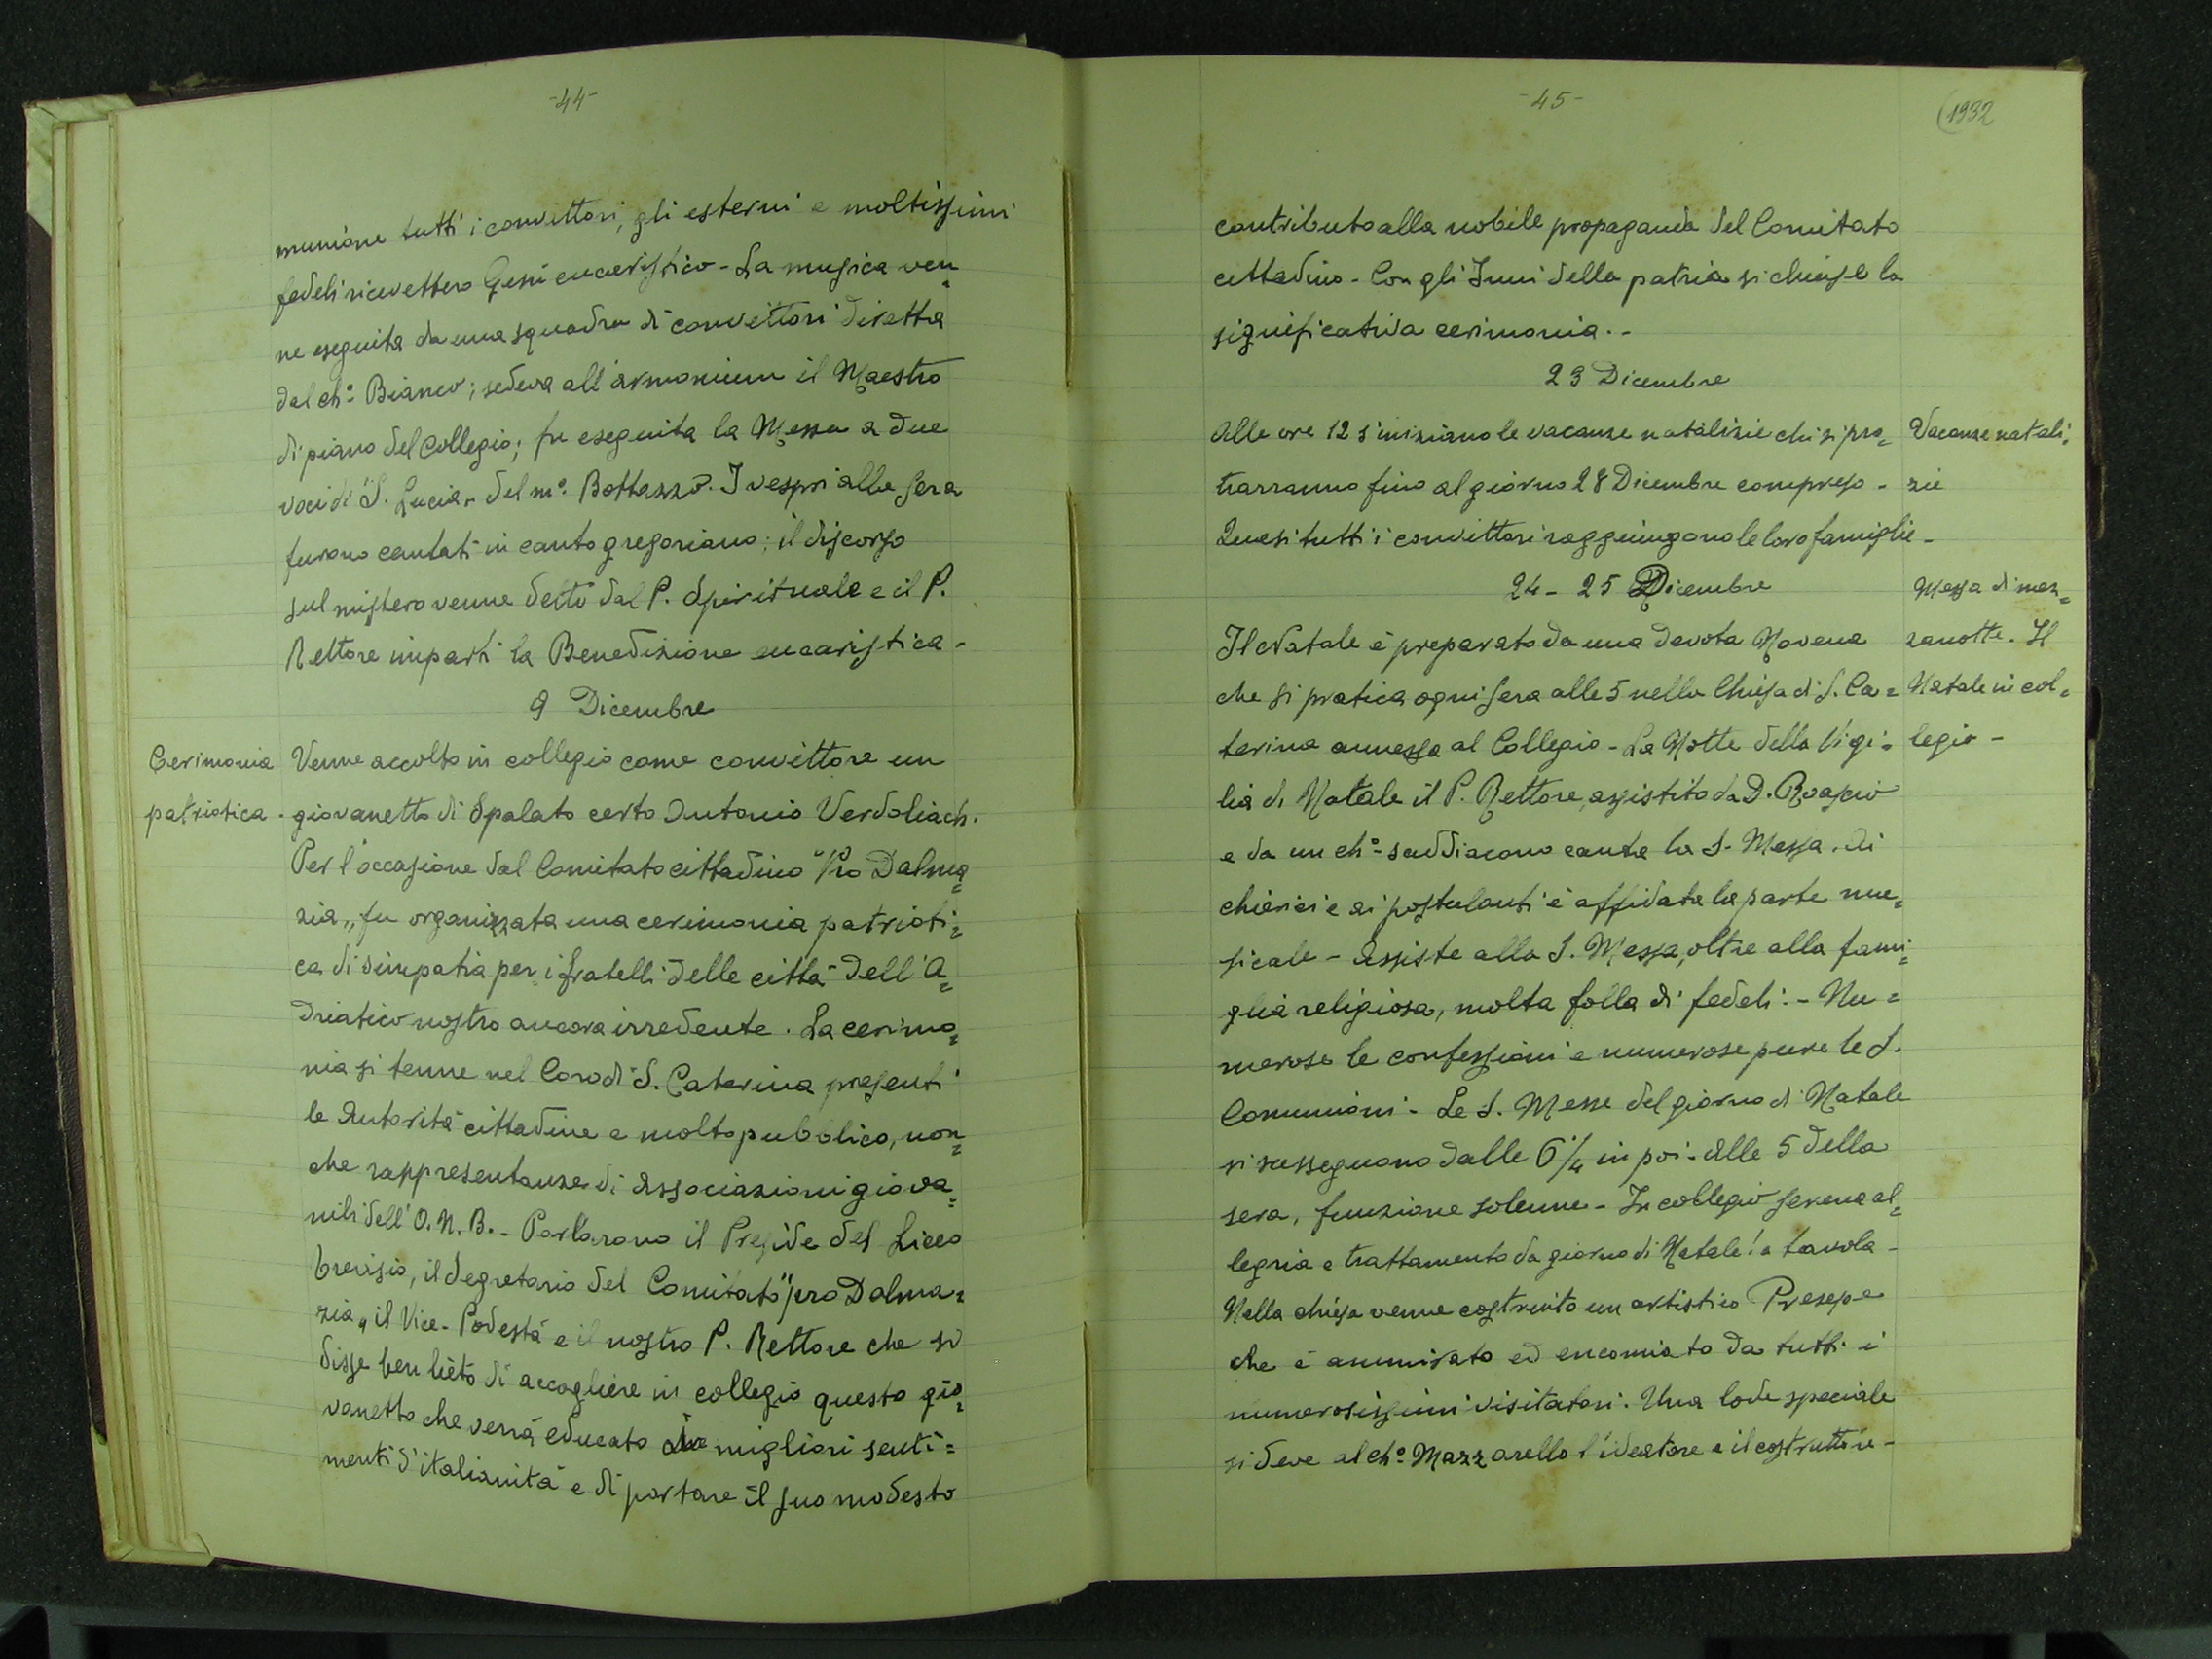 -44-
munione tutti i convittori, gli esterni e moltissimi
fedeli ricevettero Gesù eucaristico - La musica ven=
ne eseguita da una squadra di convittori diretta
dal ch.º Bianco; sedeva all'armonium il Maestro
di piano del Collegio; fu eseguita la Messa a due
voci di "S. Lucia" del m.º Bottazzo. I vespri alla sera
furono cantati in canto gregoriano; il discorso
sul mistero venne detto dal P. Spirituale e il P.
Rettore impartì la Benedizione eucaristica -
9 Dicembre
Cerimonia
patriotica.
Venne accolto in collegio come convittore un
giovanetto di Spalato certo Antonio Verdoliach.
Per l'occasione dal Comitato cittadino "Pro Dalma=
zia" fu organizzata una cerimonia patrioti=
ca di simpatia per i fratelli delle città dell'A=
driatico nostro ancora irredente. La cerimo=
nia si tenne nel Coro di S. Caterina presenti
le Autorità cittadine e molto pubblico, non=
che rappresentanze di Associazioni giova=
nili dell'O.N.B. - Parlarono il Preside del Liceo
trevisio, il Segretario del Comitato "pro Dalma=
zia", il Vice-Podestà e il nostro P. Rettore che si
disse ben lieto di accogliere in collegio questo gio=
vanetto che verrà educato migliori senti=
menti d'italianità e di portare il suo modesto
-45-
(1932
contributo alla nobile propaganda del Comitato
cittadino - Con gli Inni della patria si chiuse la
significativa cerimonia. -
23 Dicembre
Vacanze natali=
zie
Alle ore 12 s'iniziano le vacanze natalizie chi si pro=
trarranno fino al giorno 28 Dicembre compreso -
Quasi tutti i convittori raggiungono le loro famiglie -
24 - 25 Dicembre
Messa di mez=
zanotte. Il
Natale in col=
legio -
Il Natale è preparato da una devota Novena
che si pratica ogni sera alle 5 nella Chiesa di S. Ca=
terina annessa al Collegio - La Notte della Vigi=
lia di Natale il P. Rettore, assistito da D. Roascio
e da un ch.º suddiacono canta la S. Messa. Ai
chierici e ai postulanti è affidata la parte mu=
sicale - Assiste alla S. Messa, oltre alla fami=
glia religiosa, molta folla di fedeli. - Nu=
merose le confessioni e numerose pure le S.
Comunioni - Le S. Messe del giorno di Natale
si susseguono dalle 6 1/4 in poi. Alle 5 della
sera, funzione solenne - In collegio serena al=
legria e trattamento da giorno di Natale! a tavola -
Nella chiesa venne costruito un artistico Presepe
che è ammirato ed encomiato da tutti i
numerosissimi visitatori. Una lode speciale
si deve al ch.º Mazzarello l'ideatore e il costruttore -